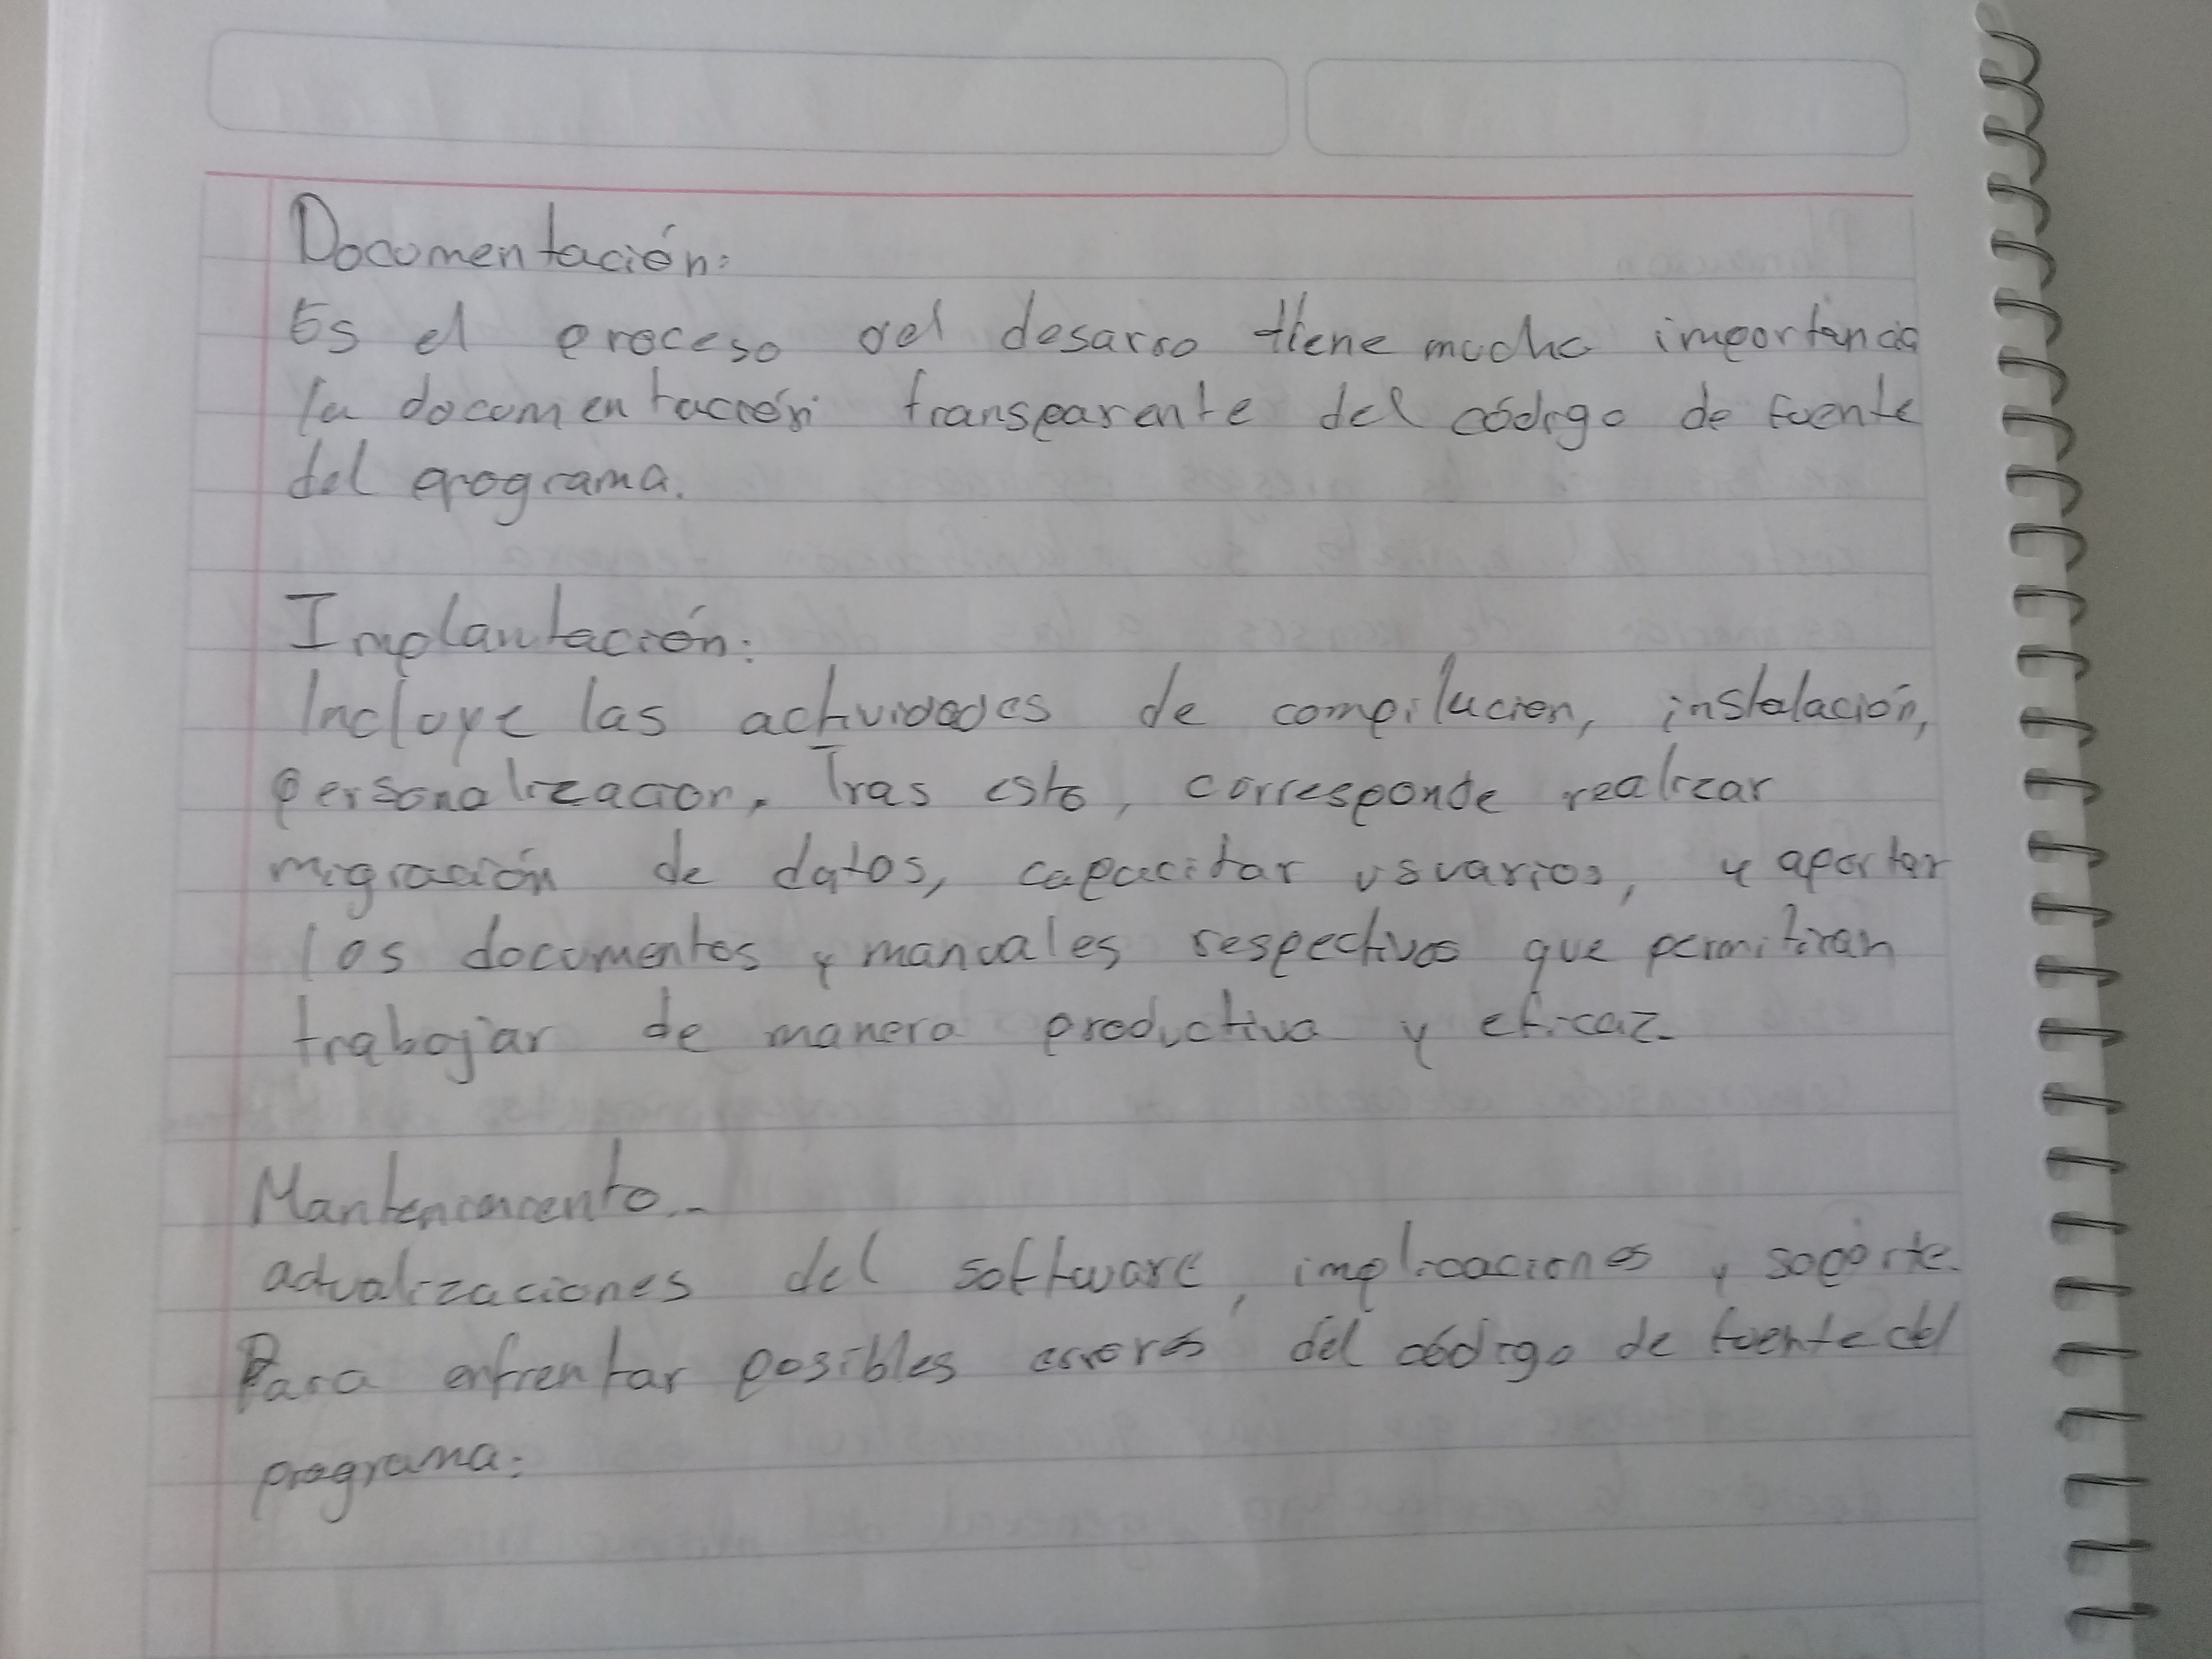 Documentación:
Es el proceso del desarro tiene mucha importancia
la documentación transparente del código de fuente
del programa.
Implantación:
Incluye las actividades de compilacion, instalación,
personalizacion. Tras esto, corresponde realizar
migración de datos, capacitar usuarios, y aportar
los documentos y manuales respectivos que permitiran
trabajar de manera productiva y eficaz.
Mantenimiento.-
actualizaciones del software, implicaciones y soporte.
Para enfrentar posibles errores del código de fuente del
programa.